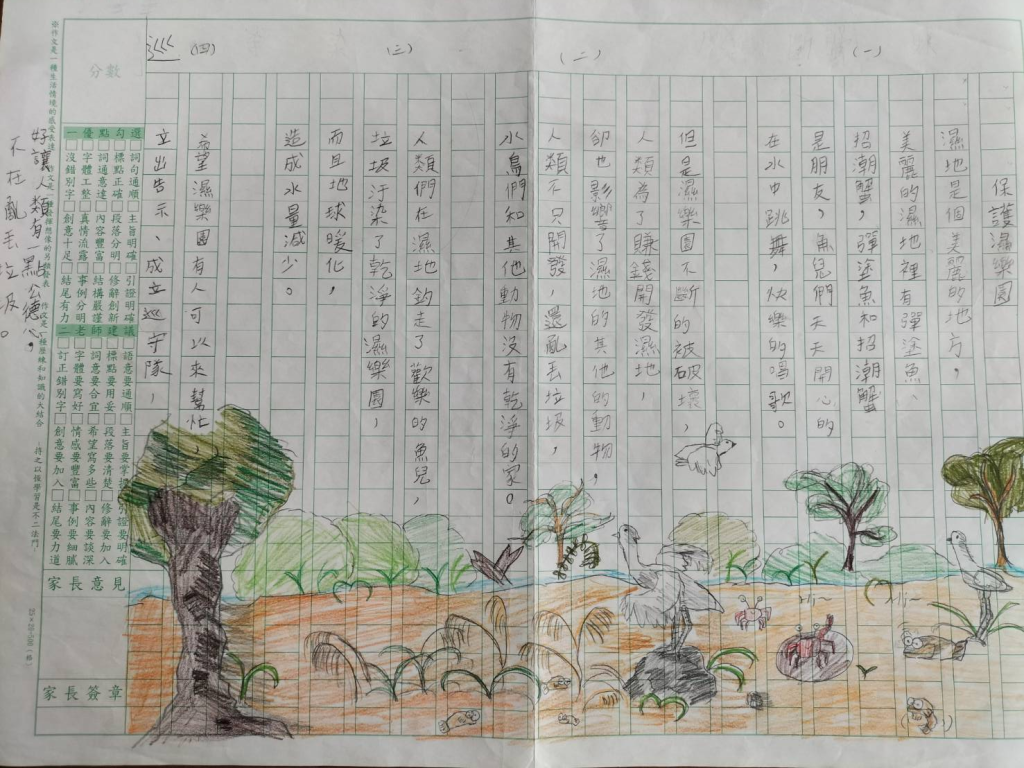 (一)
(二)
(三)
(四)
巡
保護濕樂園
濕地是個美麗的地方,
美麗的濕地裡有彈塗魚、
招潮蟹,彈塗魚和招潮蟹
是朋友,魚兒們天天開心的
在水中跳舞,快樂的鳴歌。
但是濕樂園不斷的被破壞,
人類為了賺錢開發濕地,
卻也影響了濕地的其他的動物,
人類不只開發,還亂丟垃圾,
水鳥們和其他動物沒有乾淨的家。
人類們在濕地釣走了歡樂的魚兒,
垃圾汙染了乾淨的濕樂園,
而且地球暖化,
造成水量減少。
希望濕樂園有人可以來幫忙,
立出告示、成立巡守隊,
好讓人類有一點公德心,
不在亂丟垃圾。
分數
選 詞句通順 主旨明確 引證明確 議 語意要通順 主旨要掌握 引證要明確
勾 標點正確 段落分明 修辭創新 建 標點要用妥 段落要清楚 修辭要加入
點 詞通意達 內容豐富 結構嚴謹 師 詞意要合宜 希望寫多些 內容要談深
優 字體工整 真情流露 事例分明 老 字體要寫好 情感要豐富 事例要細膩
一 沒錯別字 創意十足 結尾有力 二 訂正錯別字 創意要加入 結尾要力道
家長意見
家長簽章